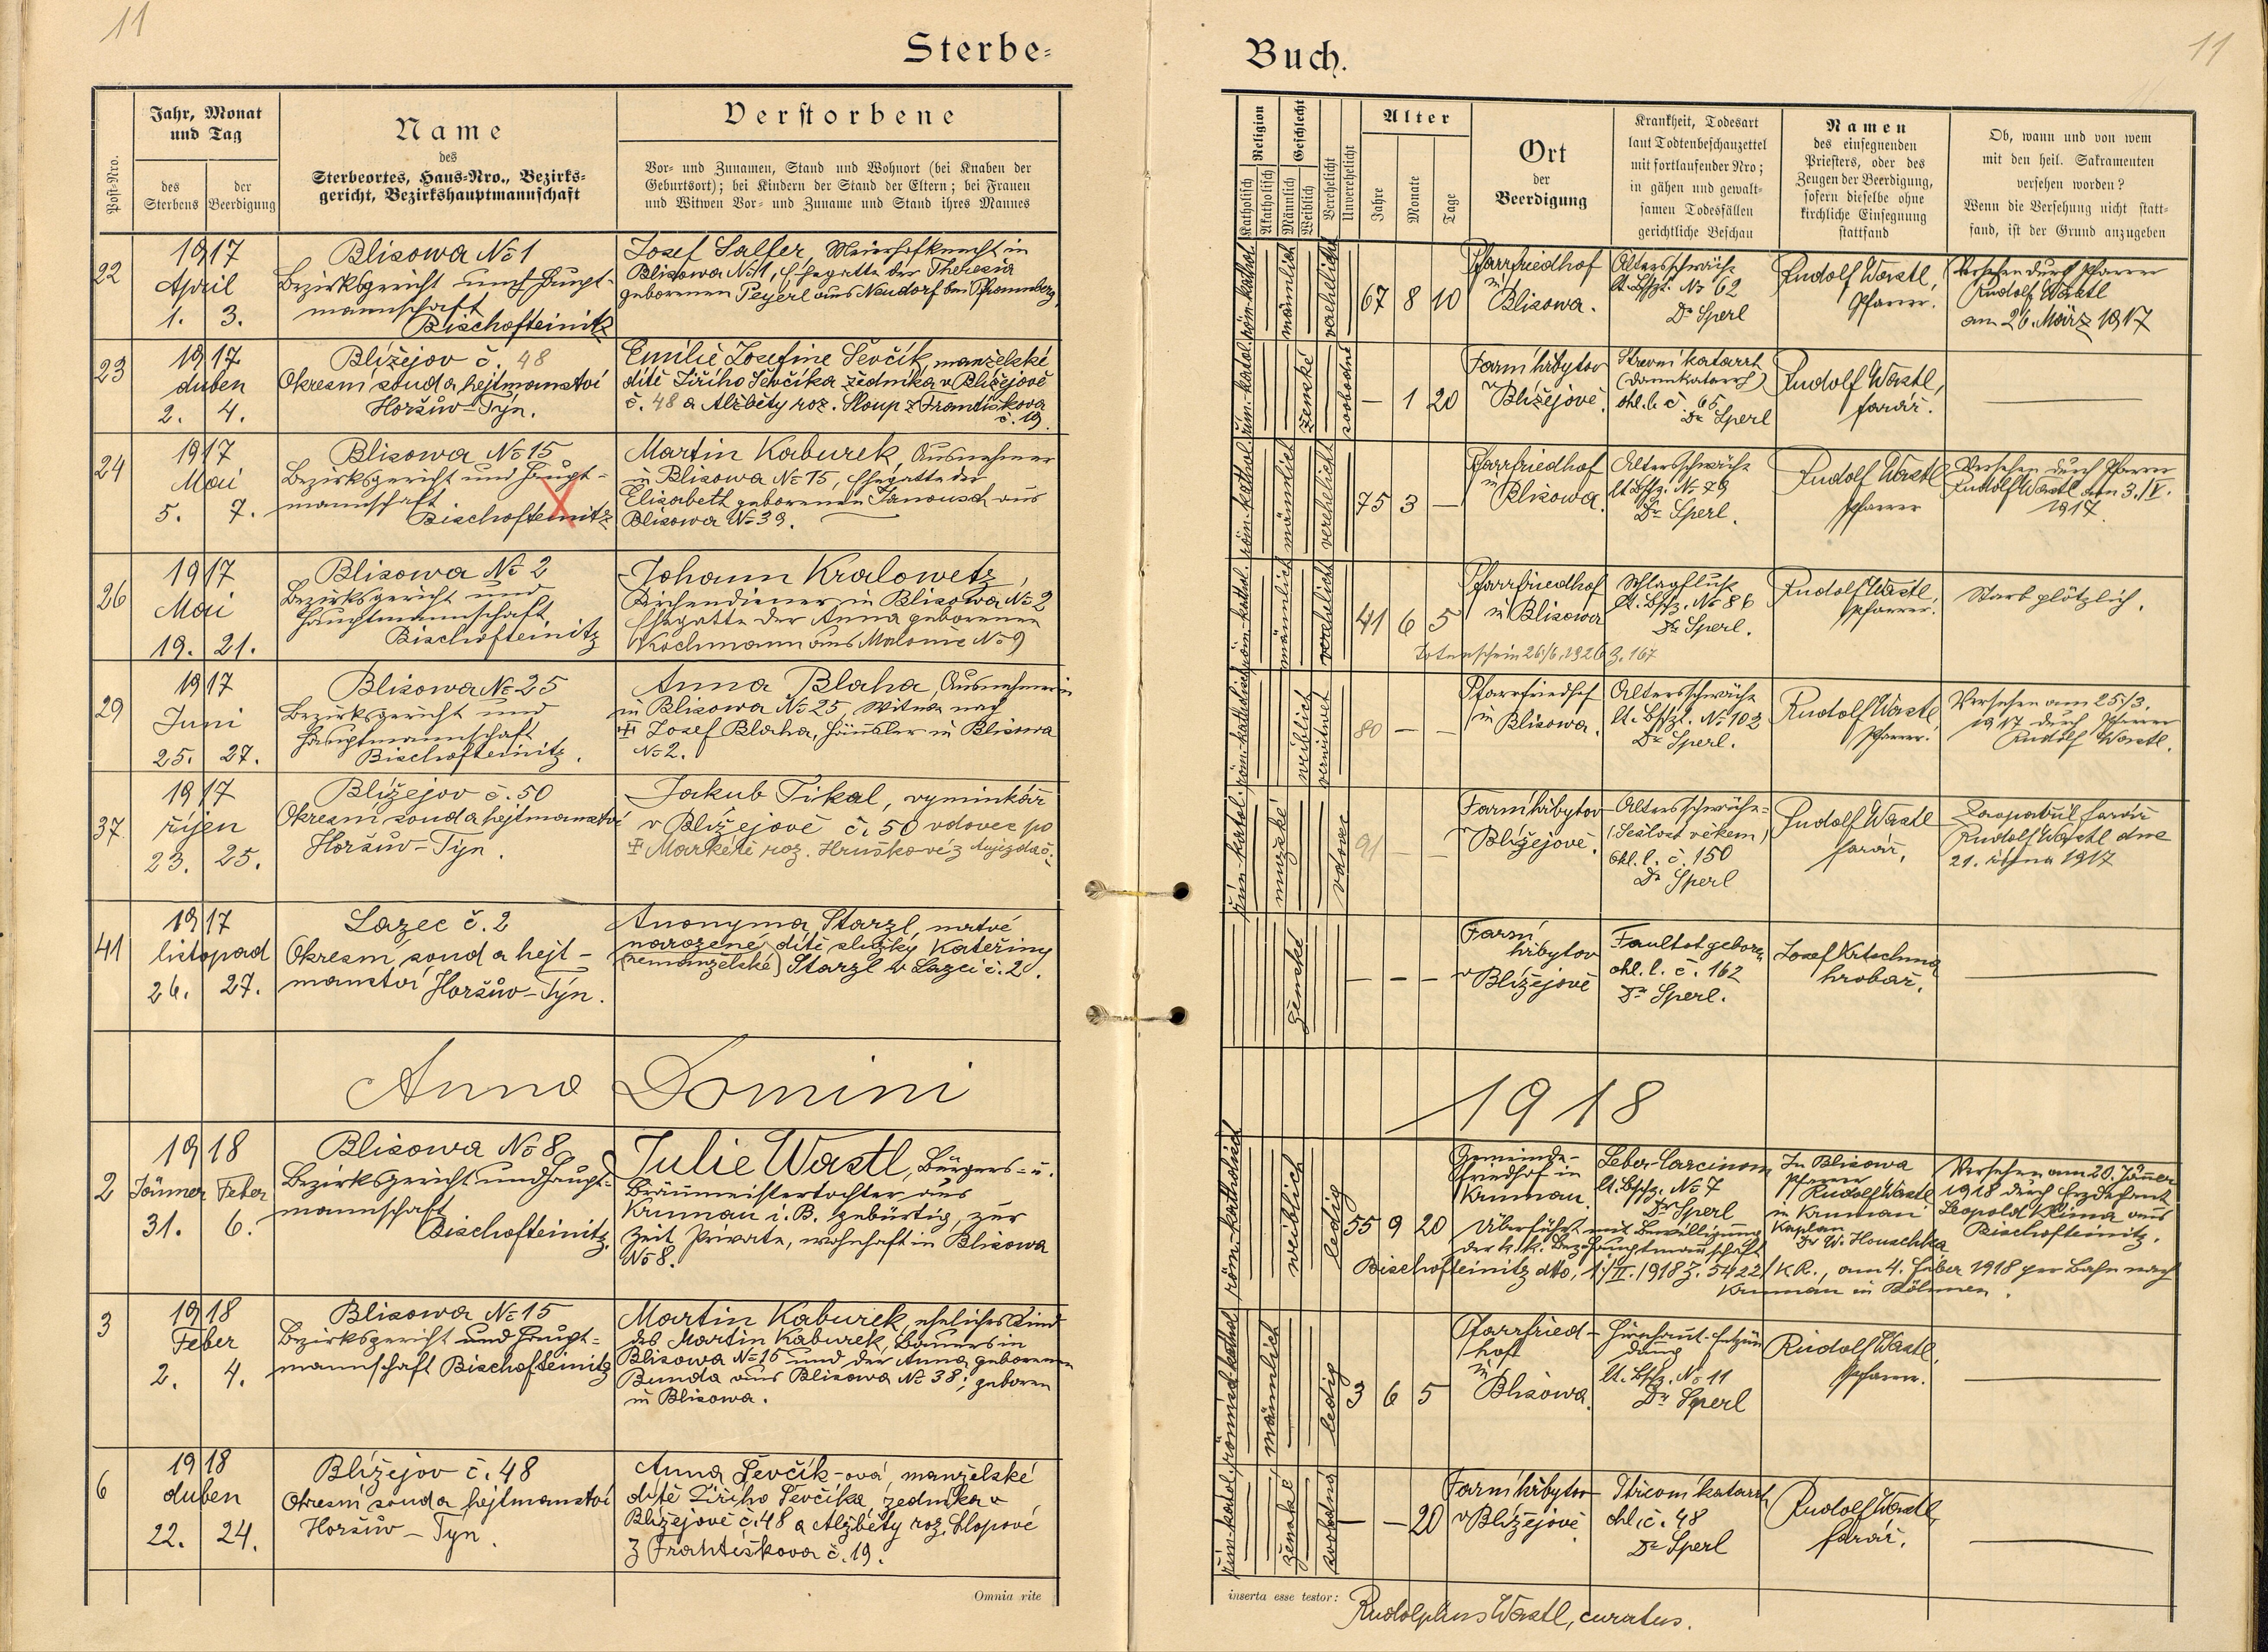 11
11
Sterbe-
Buch.
Post-Nro.
Jahr, Monat
und Tag
des
Sterbens
der
Beerdigung
Name
des
Sterbeortes, Haus-Nro., Bezirks-
gericht, Bezirkshauptmannschaft
Verstorbene
Vor- und Zunamen, Stand und Wohnort (bei Knaben der
Geburtsort); bei Kindern der Stand der Eltern; bei Frauen
und Witwen Vor- und Zuname und Stand ihres Mannes
Religion
Katholisch
Akatholisch
Geschlecht
Männlich
Weiblich
Verehelicht
Unverehelicht
Alter
Jahre
Monate
Tage
Ort
der
Beerdigung
Krankheit, Todesart
laut Todtenbeschauzettel
mit fortlaufender Nro;
in gähen und gewalt-
samen Todesfällen
gerichtliche Beschau
Namen
des einsegnenden
Priesters, oder des
Zeugen der Beerdigung,
sofern dieselbe ohne
kirchliche Einsegnung
stattfand
Ob, wann und von wem
mit den heil. Sakramenten
versehen worden?
Wenn die Versehung nicht statt-
fand, ist der Grund anzugeben
22
1917
April
1. 3.
Blisowa No 1
Bezirksgericht und Haupt-
mannschaft
Bischofteinitz
Josef Salfer, Meierhofknecht in
Blisowa No 1, Ehegatte der Theresia
geborenen Peyerl aus Neudorf bei
röm. kathol.
männlich
verehelicht
67 8 10
Pfarrfriedhof
in
Blisowa.
Altersschwäche
lt. Bschz. No 62
Dr Sperl
Rudolf Wastl,
Pfarrer.
Versehen durch Pfarrer
Rudolf Wastl
am 26. März 1917
23
1917
duben
2. 4.
Blížejov č. 48
Okresní soud a hejtmanství
Horšův-Týn.
Emilie Josefine Ševčík, manželské
dítě Jiřího Ševčíka zedníka v Blížejově
č. 48 a Alžběty roz. Sloup z Františkova
č. 19.
řím. katol.
ženské
svobodná
— 1 20
Farní hřbytov
v
Blížejově.
Střevní katarrh
(Darmkatarrh)
ohl. l. č. 65
Dr Sperl
Rudolf Wastl,
farář.
24
1917
Mai
5. 7.
Blisowa No 15
Bezirksgericht und Haupt-
mannschaft
Bischofteinitz
Martin Kaburek, Ausnehmer
in Blisowa No 15, Ehegatte der
Elisabeth geborenen Janousch aus
Blisowa No 39.
röm. kathol.
männlich
verehelicht
75 3 —
Pfarrfriedhof
in
Blisowa.
Altersschwäche
lt Bschz. No 79
Dr Sperl.
Rudolf Wastl
Pfarrer
Versehen durch Pfarrer
Rudolf Wastl am 3./V.
1917.
26
1917
Mai
19. 21.
Blisowa No 2
Bezirksgericht und
Hauptmannschaft
Bischofteinitz
Johann Kralowetz,
Kirchendiener in Blisowa No 2
Ehegatte der Anna geborenen
Kochmann aus Malonie No 9
röm. kathol.
männlich
verehelicht
41 6 5
Pfarrfriedhof
in Blisowa
Schlagfluß
lt. Bschz. No 86
Dr Sperl.
Rudolf Wastl,
Pfarrer.
Starb plötzlich.
Totenschein 26/6. 1926 Z. 167
29
1917
Juni
25. 27.
Blisowa No 25
Bezirksgericht und
Hauptmannschaft
Bischofteinitz.
Anna Blaha, Ausnehmerin
in Blisowa No 25, Witwe nach
Josef Blaha, Häusler in Blisowa
No 2.
röm. katholisch
weiblich
verwitwet
80 — —
Pfarrfriedhof
in
Blisowa.
Altersschwäche
lt. Bschz. No 102
Dr Sperl.
Rudolf Wastl
Pfarrer.
Versehen am 25./3.
1917 durch Pfarrer
Rudolf Wastl.
37.
1917
říjen
23. 25.
Blížejov č. 50
Okresní soud a hejtmanství
Horšův-Týn.
Jakub Tikal, vyminkář
v Blížejově č. 50 vdovec po
Markétě roz. Hruškové z
řím. katol.
mužské
vdovec
91 — —
Farní hřbytov
v
Blížejově.
Altersschwäche
(Sešlost věkem)
ohl. l. č. 150
Dr Sperl
Rudolf Wastl
farář.
Zaopatřil farář
Rudolf Wastl dne
21. října 1917
41
1917
listopad
26. 27.
Lazec č. 2
Okresní soud a hejt-
manství Horšův-Týn.
Anonyma Starzl, mrtvé
narozené dítě služky Kateřiny
(nemanželské) Starzl v Lazci č. 2.
ženské
— — —
Farní
hřbytov
v
Blížejově
Faultotgeboren
ohl. l. č. 162
Dr Sperl.
Josef Krtschma
hrobař.
Anno Domini
1918
2
1918
Jänner Feber
31. 6.
Blisowa No 8
Bezirksgericht und Haupt-
mannschaft
Bischofteinitz.
Julie Wastl, Bürgers- u.
Bräumeistertochter aus
Krumau i. B. gebürtig, zur
Zeit Private, wohnhaft in Blisowa
No 8.
röm. katholisch
weiblich
ledig
55 9 20
Gemeinde-
friedhof in
Krumau.
Leber-Carcinom
lt. Bschz. No 7
Dr Sperl
In Blisowa
Pfarrer
Rudolf Wastl
in Krumau
Kaplan
Dr W. Houschka
Versehen am 20. Jänner
1918 durch Erzdechant
Leopold Klima aus
Bischofteinitz.
Überführt mit Bewilligung
der k. k. Bezirkshauptmannschaft
Bischofteinitz dto. 1./II. 1918 Z. 5422/K.R., am 4. Feber 1918 per Bahn nach
Krumau in Böhmen.
3
1918
Feber
2. 4.
Blisowa No 15
Bezirksgericht und Haupt-
mannschaft Bischofteinitz
Martin Kaburek, eheliches Kind
des Martin Kaburek, Bauers in
Blisowa No 15 und der Anna geborenen
Bunda aus Blisowa No 38; geboren
in Blisowa.
römisch kathol.
männlich
ledig
3 6 5
Pfarrfried-
hof
in
Blisowa
Hirnhaut-Entzün
dung
lt. Bschz. No 11
Dr Sperl
Rudolf Wastl,
Pfarrer.
6
1918
duben
22. 24.
Blížejov č. 48
Okresní soud a hejtmanství
Horšův-Týn.
Anna Ševčík-ová, manželské
dítě Jiřího Ševčíka, zedníka v
Blížejově č. 48 a Alžběty roz. Slopové
z Františkova č. 19.
řím. katol.
ženské
svobodná
— — 20
Farní hřbytov
v Blížejově
Střevní katarrh
ohl. č. 48
Dr Sperl
Rudolf Wastl,
farář.
Omnia rite
inserta esse testor:
Rudolphus Wastl, curatus.